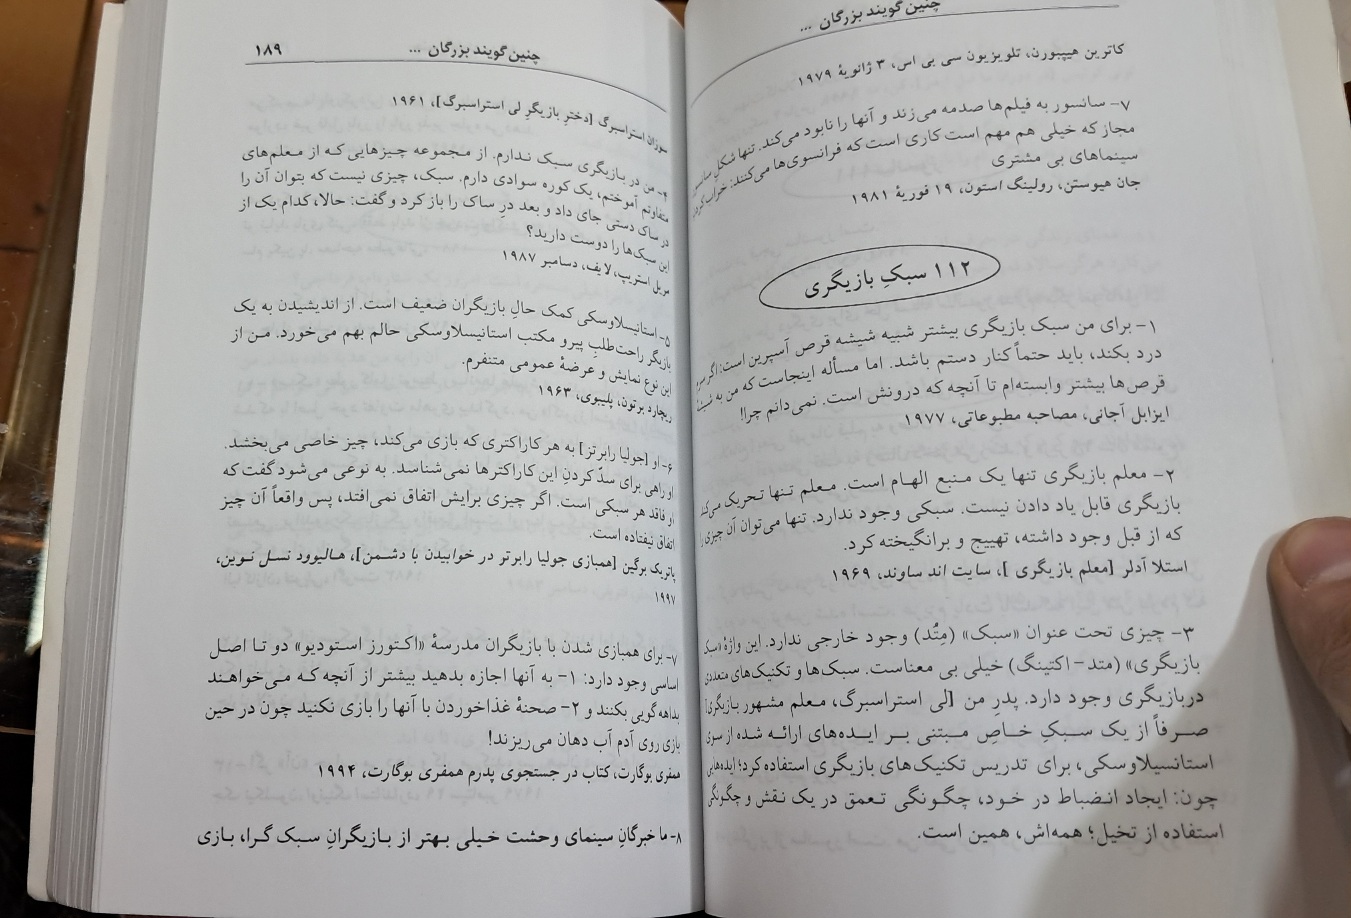 چنین گویند بزرگان ...
کاترین هیپبورن، تلویزیون سی بی اس، ۳ ژانویهٔ ۱۹۷۹
۷- سانسور به فیلم‌ها صدمه می‌زند و آنها را نابود می‌کند. تنها شکلِ
مجاز که خیلی هم مهم است کاری است که فرانسوی‌ها می‌کنند: خراب کردن
سینماهای بی مشتری
جان هیوستن، رولینگ استون، ۱۹ فوریهٔ ۱۹۸۱
۱۱۲ سبکِ بازیگری
۱- برای من سبک بازیگری بیشتر شبیه شیشه قرص آسپرین است: اگر سرم
درد بکند، باید حتماً کنار دستم باشد. اما مسأله اینجاست که من به شیشهٔ
قرص‌ها بیشتر وابسته‌ام تا آنچه که درونش است. نمی‌دانم چرا!
ایزابل آجانی، مصاحبه مطبوعاتی، ۱۹۷۷
۲- معلم بازیگری تنها یک منبع الهام است. معلم تنها تحریک می‌کند
بازیگری قابل یاد دادن نیست. سبکی وجود ندارد. تنها می‌توان آن چیزی را
که از قبل وجود داشته، تهییج و برانگیخته کرد.
استلا آدلر [معلم بازیگری ]، سایت اند ساوند، ۱۹۶۹
۳- چیزی تحت عنوان «سبک» (مِتُد) وجود خارجی ندارد. این واژهٔ «سبک
بازیگری» (متد-اکتینگ) خیلی بی معناست. سبک‌ها و تکنیک‌های متعددی
در بازیگری وجود دارد. پدرِ من [لی استراسبرگ، معلم مشهور بازیگری]
صرفاً از یک سبکِ خاصِ مبتنی بر ایده‌های ارائه شده از سوی
استانسیلاوسکی، برای تدریس تکنیک‌های بازیگری استفاده کرد؛ ایده‌هایی
چون: ایجاد انضباط در خود، چگونگی تعمق در یک نقش و چگونگی
استفاده از تخیل؛ همه‌اش، همین است.
چنین گویند بزرگان ... ۱۸۹
سوزان استراسبرگ [دخترِ بازیگرِ لی استراسبرگ]، ۱۹۶۱
۴- من در بازیگری سبک ندارم. از مجموعه چیزهایی که از معلم‌های
متفاوتم آموختم، یک کوره سوادی دارم. سبک، چیزی نیست که بتوان آن را
در ساک دستی جای داد و بعد در ساک را باز کرد و گفت: حالا، کدام یک از
این سبک‌ها را دوست دارید؟
مریل استریپ، لایف، دسامبر ۱۹۸۷
۵- استانیسلاوسکی کمک حالِ بازیگران ضعیف است. از اندیشیدن به یک
بازیگر راحت‌طلبِ پیرو مکتب استانیسلاوسکی حالم بهم می‌خورد. من از
این نوع نمایش و عرضهٔ عمومی متنفرم.
ریچارد برتون، پلیبوی، ۱۹۶۳
۶- او [جولیا رابرتز] به هر کاراکتری که بازی می‌کند، چیز خاصی می‌بخشد.
او راهی برای سدّ کردنِ این کاراکترها نمی‌شناسد. به نوعی می‌شود گفت که
او فاقد هر سبکی است. اگر چیزی برایش اتفاق نمی‌افتد، پس واقعاً آن چیز
اتفاق نیفتاده است.
پاتریک برگین [همبازی جولیا رابرتز در خوابیدن با دشمن]، هالیوود نسل نوین،
۱۹۹۷
۷- برای همبازی شدن با بازیگران مدرسهٔ «اکتورز استودیو» دو تا اصل
اساسی وجود دارد: ۱- به آنها اجازه بدهید بیشتر از آنچه که می‌خواهند
بداهه‌گویی بکنند و ۲- صحنهٔ غذاخوردن با آنها را بازی نکنید چون در حین
بازی روی آدم آب دهان می‌ریزند!
همفری بوگارت، کتاب در جستجوی پدرم همفری بوگارت، ۱۹۹۴
۸- ما خبرگانِ سینمای وحشت خیلی بهتر از بازیگرانِ سبک گرا، بازی